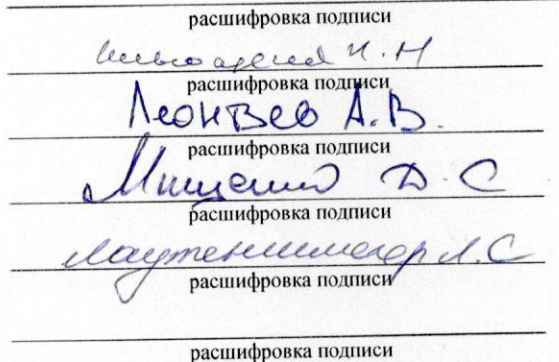 расшифровка подписи
И.Н
расшифровка подписи
Леонтьев А.В.
расшифровка подписи
Мищенко Д.С
расшифровка подписи
Л.С
расшифровка подписи
расшифровка подписи